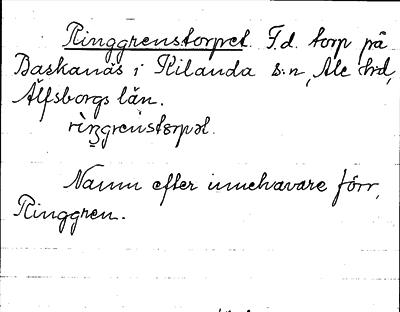 Ringgrenstorpet. F.d. torp på
Baskanäs i Kilanda s:n, Ale hrd,
Älfsborgs län.
rìŋgrenstɔrpəl.
Namn efter innehavare förr,
Ringgren.